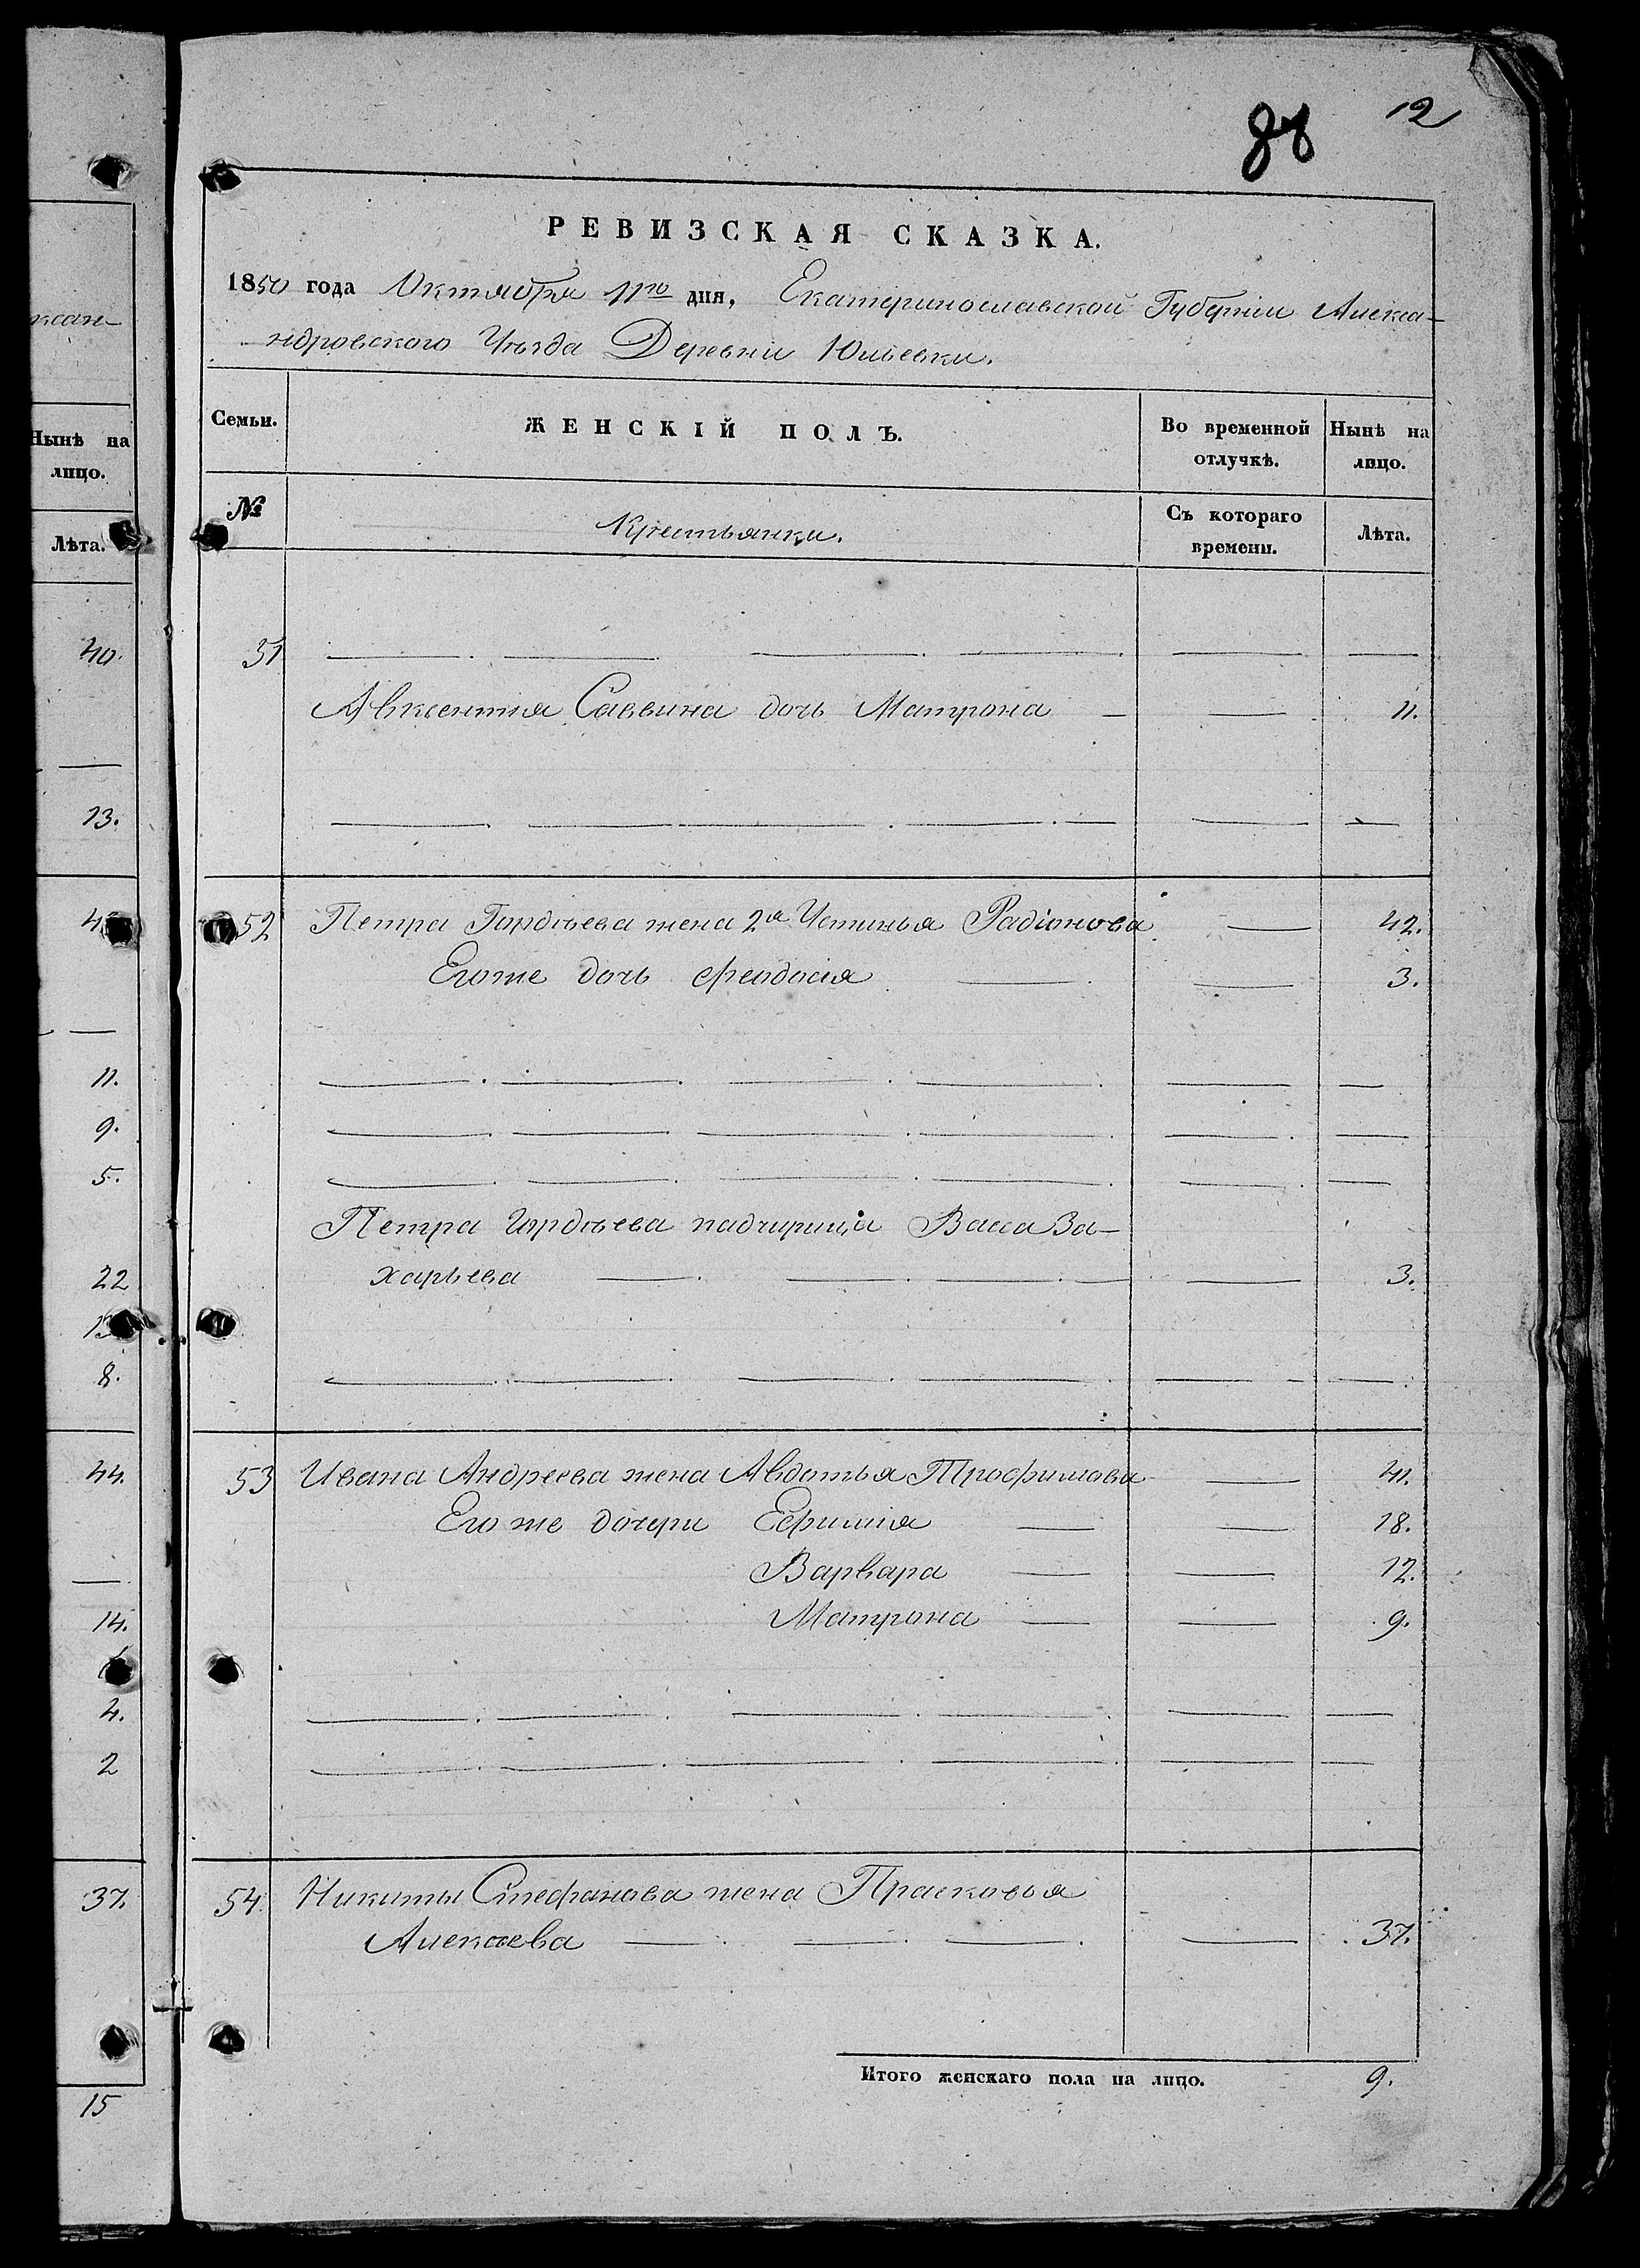 12
РЕВИЗСКАЯ СКАЗКА.
1850 года Октября 11го дня, Екатеринославской Губернии Алекса-
ндровского Уѣзда Деревни Юльевки.
Семьи. ЖЕНСКІЙ ПОЛЪ. Во временной отлучкѣ. Нынѣ на лицо.
№ Крестьянки. Съ котораго времени. Лѣта.
51
Авксентия Саввина дочь Матрона 11.
52 Петра Гордѣева жена 2я Устинья Радіонова 42.
Его же дочь Феодосія 3.
Петра Гордѣева падчирица Васса За-
харьева 3.
53 Ивана Андреева жена Авдотья Трофимова 41.
Его же дочери Ефимия 18.
Варвара 12.
Матрона 9.
54 Никиты Стефанова жена Прасковья
Алексеева 37.
Итого женскаго пола на лицо. 9.
ксан-
Нынѣ на
лицо.
Лѣта.
40.
13.
11.
9.
5.
22
8.
44.
14.
4.
2
37.
15